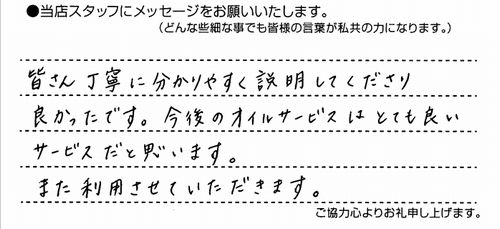 ●当店スタッフにメッセージをお願いいたします。
（どんな些細な事でも皆様の言葉が私共の力になります。）
皆さん丁寧に分かりやすく説明してくださり
良かったです。今後のオイルサービスはとても良い
サービスだと思います。
また利用させていただきます。
ご協力心よりお礼申し上げます。